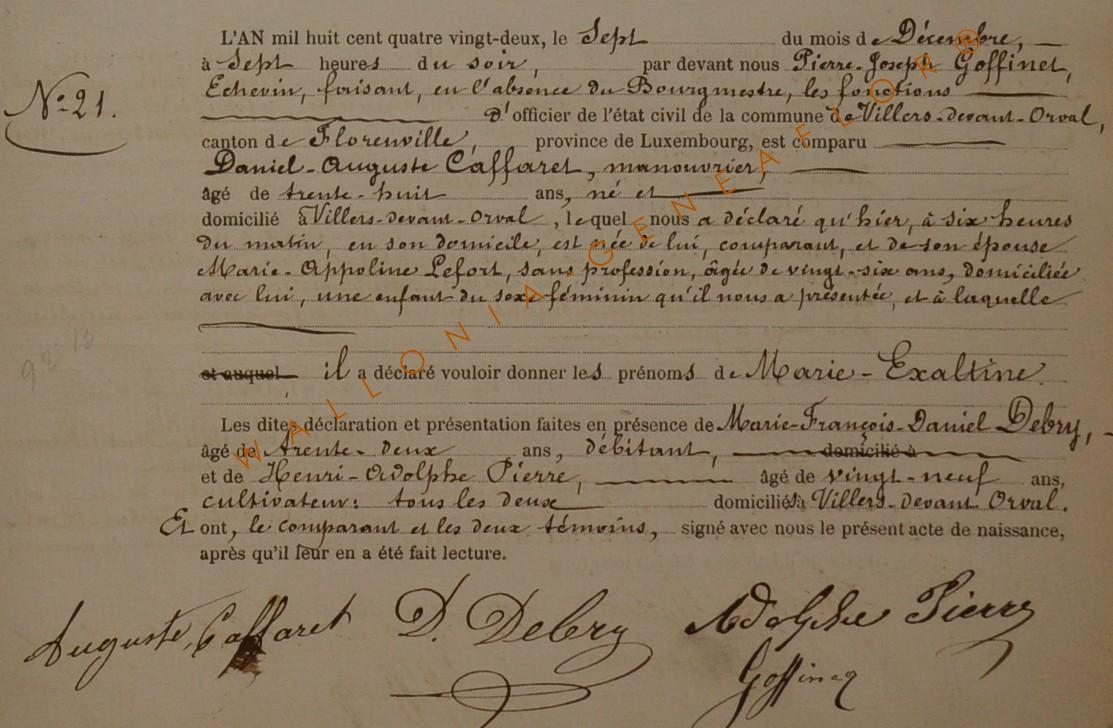 L'AN mil huit cent quatre vingt-deux, le Sept du mois de Décembre,
à Sept heures du soir, par devant nous Pierre-Joseph Goffinet,
Nº 21.
Echevin, faisant, en l'absence du Bourgmestre, les fonctions
d'officier de l'état civil de la commune de Villers-devant-Orval,
canton de Florenville, province de Luxembourg, est comparu
Daniel-Auguste Caffaret, manouvrier,
âgé de trente-huit ans, né et
domicilié à Villers-devant-Orval, lequel nous a déclaré qu'hier, à six heures
du matin, en son domicile, est née de lui, comparant, et de son épouse
Marie-Appoline Lefort, sans profession, âgée de vingt-six ans, domiciliée
avec lui, une enfant du sexe féminin qu'il nous a présentée, et à laquelle
et auquel il a déclaré vouloir donner les prénoms de Marie-Exaltine.
Les dites déclaration et présentation faites en présence de Marie-François-Daniel Debry,
âgé de trente-deux ans, débitant, domicilié à
et de Henri-Adolphe Pierre, âgé de vingt-neuf ans,
cultivateur: tous les deux domiciliés à Villers-devant-Orval.
Et ont, le comparant et les deux témoins, signé avec nous le présent acte de naissance,
après qu'il leur en a été fait lecture.
Auguste Caffaret D. Debry Adolphe Pierre
WALLONIA GENEALOR@